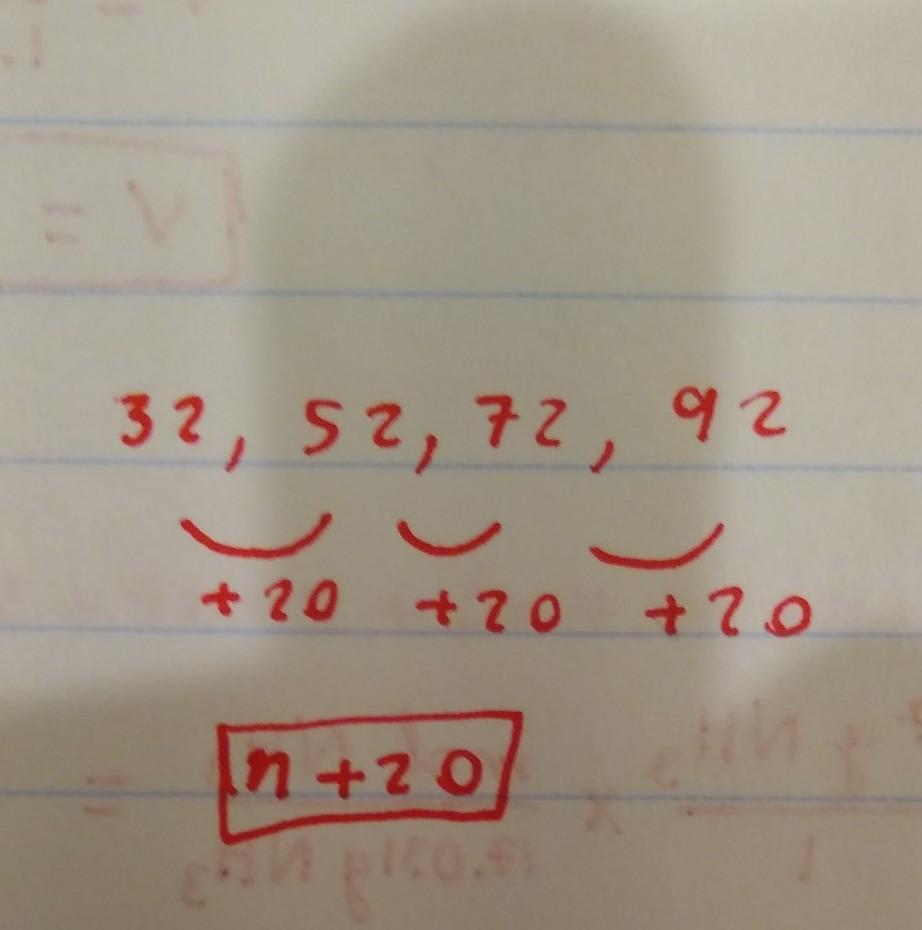 32, 52, 72, 92
+20 +20 +20
n+20